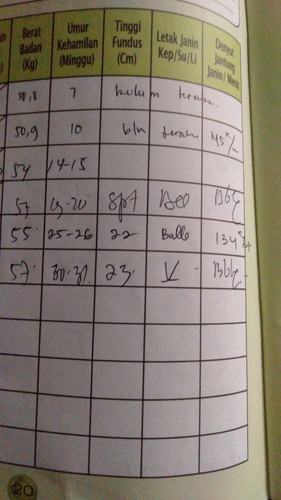 Berat Badan (Kg) Umur Kehamilan (Minggu) Tinggi Fundus (Cm) Letak Janin Kep/Su/Li Denyut Jantung Janin/ Menit
50,8 7 belum teraba.
50,9 10 bln teraba 145 x/
54 14-15
57 19-20 Spt Ball
55 25-26 22 Balle 134 x/
57 30-31 23
20